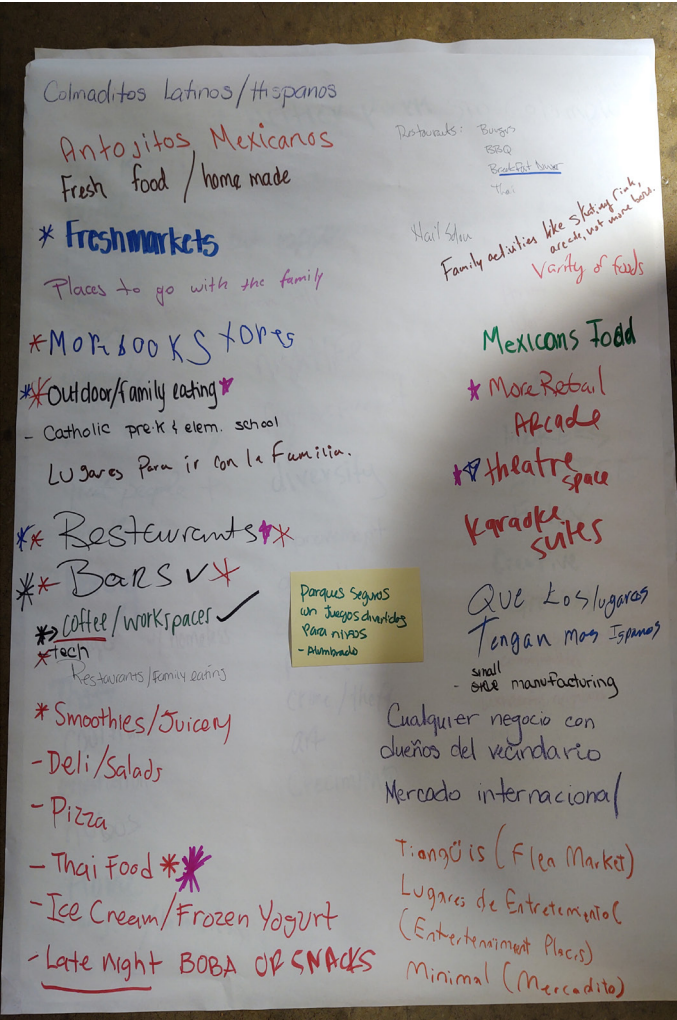 Colmaditos Latinos/Hispanos
Antojitos Mexicanos
Fresh food / home made
* Freshmarkets
Places to go with the family
* More books xtores
** Outdoor/family eating *
- Catholic pre-k & elem. school
Lugares Para ir con la Familia.
** Restaurants **
** Bars ✓ *
* > coffee/workspaces ✓
* tech
Restaurants/family eating
* Smoothies/Juicery
- Deli/Salads
- Pizza
- Thai Food **
- Ice Cream/Frozen Yogurt
- Late night BOBA OR SNACKS
Restaurants: Burgers
BBQ
Breakfast Diner
Thai
Nail Salon
Family activities like skating rink,
arcade, not more bars.
Varity of foods
Mexicans Fodd
* More Retail
ARCADE
* theatre
space
Karaoke
suites
Parques Seguros
un Juegos divertidos
Para niños
- Alumbrado
Que Los lugares
Tengan mas Ispanos
small
- manufacturing
Cualquier negocio con
dueños del vecindario
Mercado internacional
Tiangüis (Flea Market)
Lugares de
(Entertenniment Placis)
Minimal (Mercadito)